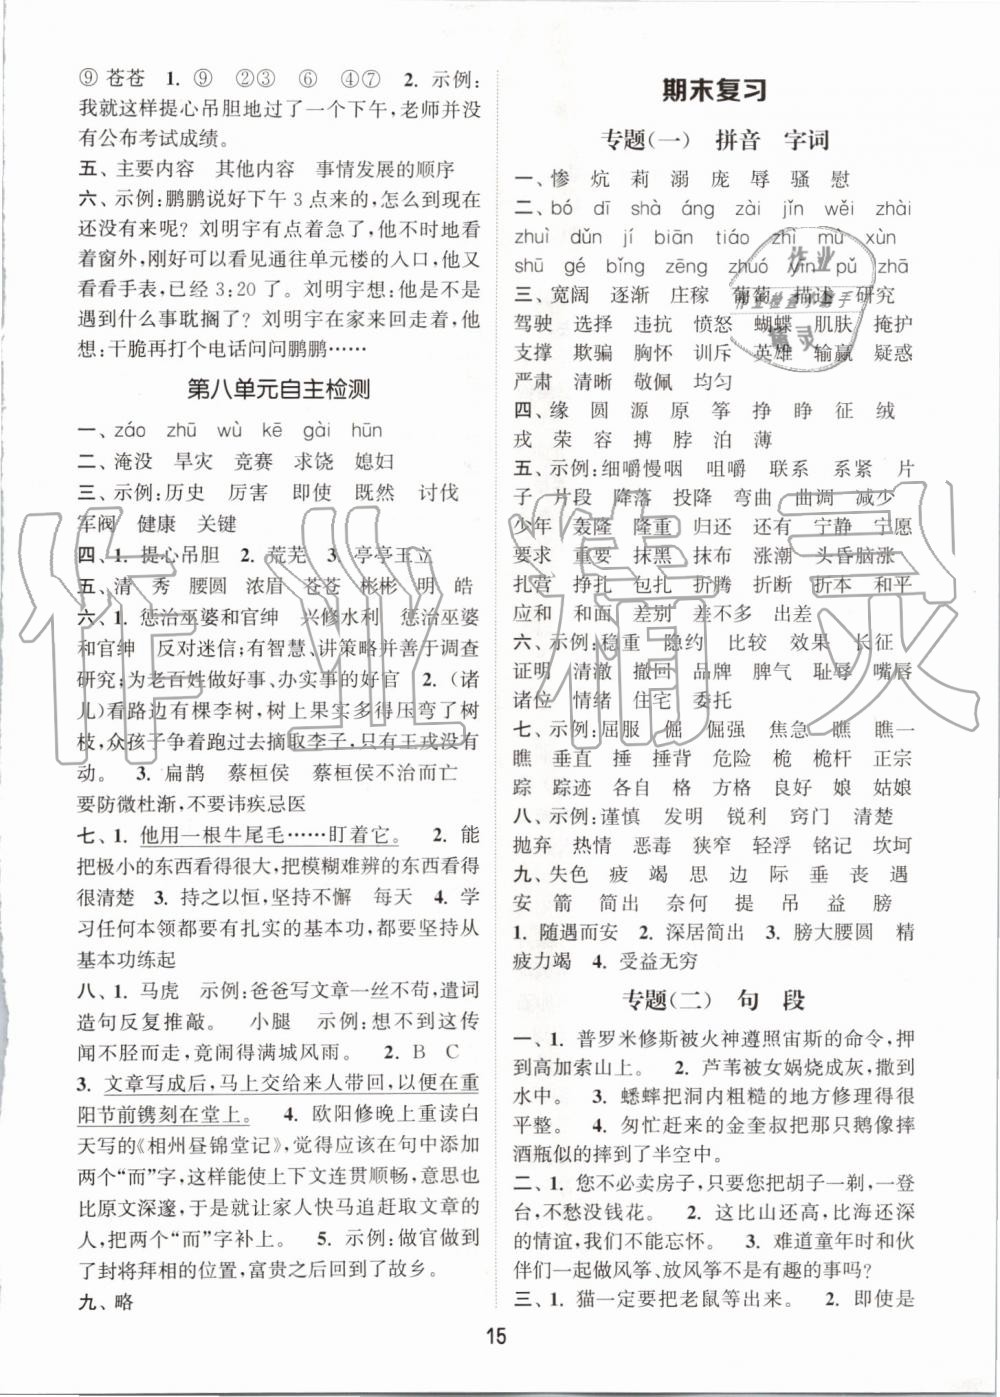 ⑨ 苍苍 1. ⑨ ②③ ⑥ ④⑦ 2. 示例:
我就这样提心吊胆地过了一个下午,老师并没
有公布考试成绩。
五、主要内容 其他内容 事情发展的顺序
六、示例:鹏鹏说好下午 3 点来的,怎么到现在
还没有来呢? 刘明宇有点着急了,他不时地看
着窗外,刚好可以看见通往单元楼的入口,他又
看看手表,已经 3:20 了。刘明宇想:他是不是
遇到什么事耽搁了? 刘明宇在家来回走着,他
想:干脆再打个电话问问鹏鹏……
第八单元自主检测
一、záo zhū wù kē gài hūn
二、淹没 旱灾 竞赛 求饶 媳妇
三、示例:历史 厉害 即使 既然 讨伐
军阀 健康 关键
四、1. 提心吊胆 2. 荒芜 3. 亭亭玉立
五、清 秀 腰圆 浓眉 苍苍 彬彬 明 皓
六、1. 惩治巫婆和官绅 兴修水利 惩治巫婆
和官绅 反对迷信;有智慧、讲策略并善于调查
研究;为老百姓做好事、办实事的好官 2. (诸
儿)看路边有棵李树,树上果实多得压弯了树
枝,众孩子争着跑过去摘取李子,只有王戎没有
动。 3. 扁鹊 蔡桓侯 蔡桓侯不治而亡
要防微杜渐,不要讳疾忌医
七、1. 他用一根牛尾毛……盯着它。 2. 能
把极小的东西看得很大,把模糊难辨的东西看得
很清楚 3. 持之以恒,坚持不懈 每天 4. 学
习任何本领都要有扎实的基本功,都要坚持从
基本功练起
八、1. 马虎 示例:爸爸写文章一丝不苟,遣词
造句反复推敲。 小腿 示例:想不到这传
闻不胫而走,竟闹得满城风雨。 2. B C
3. 文章写成后,马上交给来人带回,以便在重
阳节前镌刻在堂上。 4. 欧阳修晚上重读白
天写的《相州昼锦堂记》,觉得应该在句中添加
两个“而”字,这样能使上下文连贯顺畅,意境也
比原文深邃,于是就让家人快马追赶取文章的
人,把两个“而”字补上。 5. 示例:做官做到
了封将拜相的位置,富贵之后回到了故乡。
九、略
期末复习
专题(一) 拼音 字词
一、惨 炕 莉 溺 庞 辱 骚 慰
二、bó dī shà áng zài jǐn wěi zhài
zhuì dǔn jí biān tiáo zhì mù xùn
shū gé bǐng zēng zhuó yīn pǔ zhā
三、宽阔 逐渐 庄稼 葡萄 描让 研究
驾驶 选择 违抗 愤怒 蝴蝶 肌肤 掩护
支撑 欺骗 胸怀 训斥 英雄 输赢 疑惑
严肃 清晰 敬佩 均匀
四、缘 圆 源 原 筝 挣 睁 征 绒
戎 荣 容 搏 脖 泊 薄
五、示例:细嚼慢咽 咀嚼 联系 系紧 片
子 片段 降落 投降 弯曲 曲调 减少
少年 轰隆 隆重 归还 还有 宁静 宁愿
要求 重要 抹黑 抹布 涨潮 头昏脑涨
扎营 挣扎 包扎 折腾 折断 折本 和平
应和 和面 差别 差不多 出差
六、示例:稳重 隐约 比较 效果 长征
证明 清澈 撤回 品牌 脾气 耻辱 嘴唇
诸位 情绪 住宅 委托
七、示例:屈服 倔 倔强 焦急 瞧 瞧一
瞧 垂直 捶 捶背 危险 桅 桅杆 正宗
踪 踪迹 各自 格 方格 良好 娘 姑娘
八、示例:谨慎 发明 锐利 窍门 清楚
抛弃 热情 恶毒 狭窄 轻浮 铭记 坎坷
九、失色 疲 竭 思 边 际 垂 丧 遇
安 箭 简出 奈何 提 吊 益 膀
1. 随遇而安 2. 深居简出 3. 膀大腰圆 精
疲力竭 4. 受益无穷
专题(二) 句 段
一、1. 普罗米修斯被火神遵照宙斯的命令,押
到高加索山上。 2. 芦苇被女娲烧成灰,撒到
水中。 3. 蟋蟀把洞内粗糙的地方修理得很
平整。 4. 匆忙赶来的金奎叔把那只鹅像摔
酒瓶似的摔到了半空中。
二、1. 您不必卖房子,只要您把胡子一剃,一登
台,不愁没钱花。 2. 这比山还高,比海还深
的情谊,我们不能忘怀。 3. 难道童年时和伙
伴们一起做风筝、放风筝不是有趣的事吗?
三、1. 猫一定要把老鼠等出来。 2. 即使是
15
作业精灵
作业检查小助手